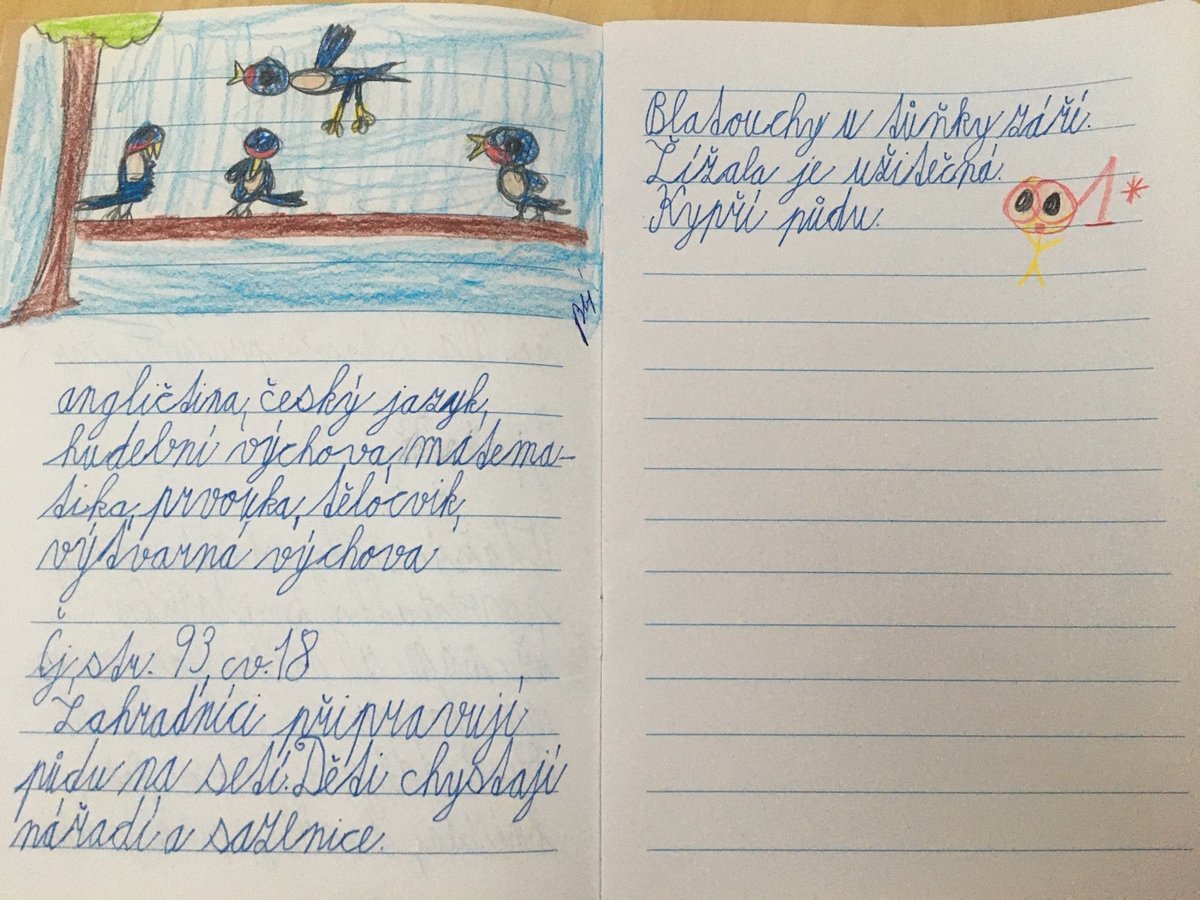 angličtina, český jazyk,
hudební výchova, matema-
tika, prvouka, tělocvik,
výtvarná výchova
Čj, str. 93, cv. 18
Zahradníci připravují
půdu na setí. Děti chystají
nářadí a sazenice.
Blatouchy u tůňky září.
Žížala je užitečná.
Kypří půdu.
1*